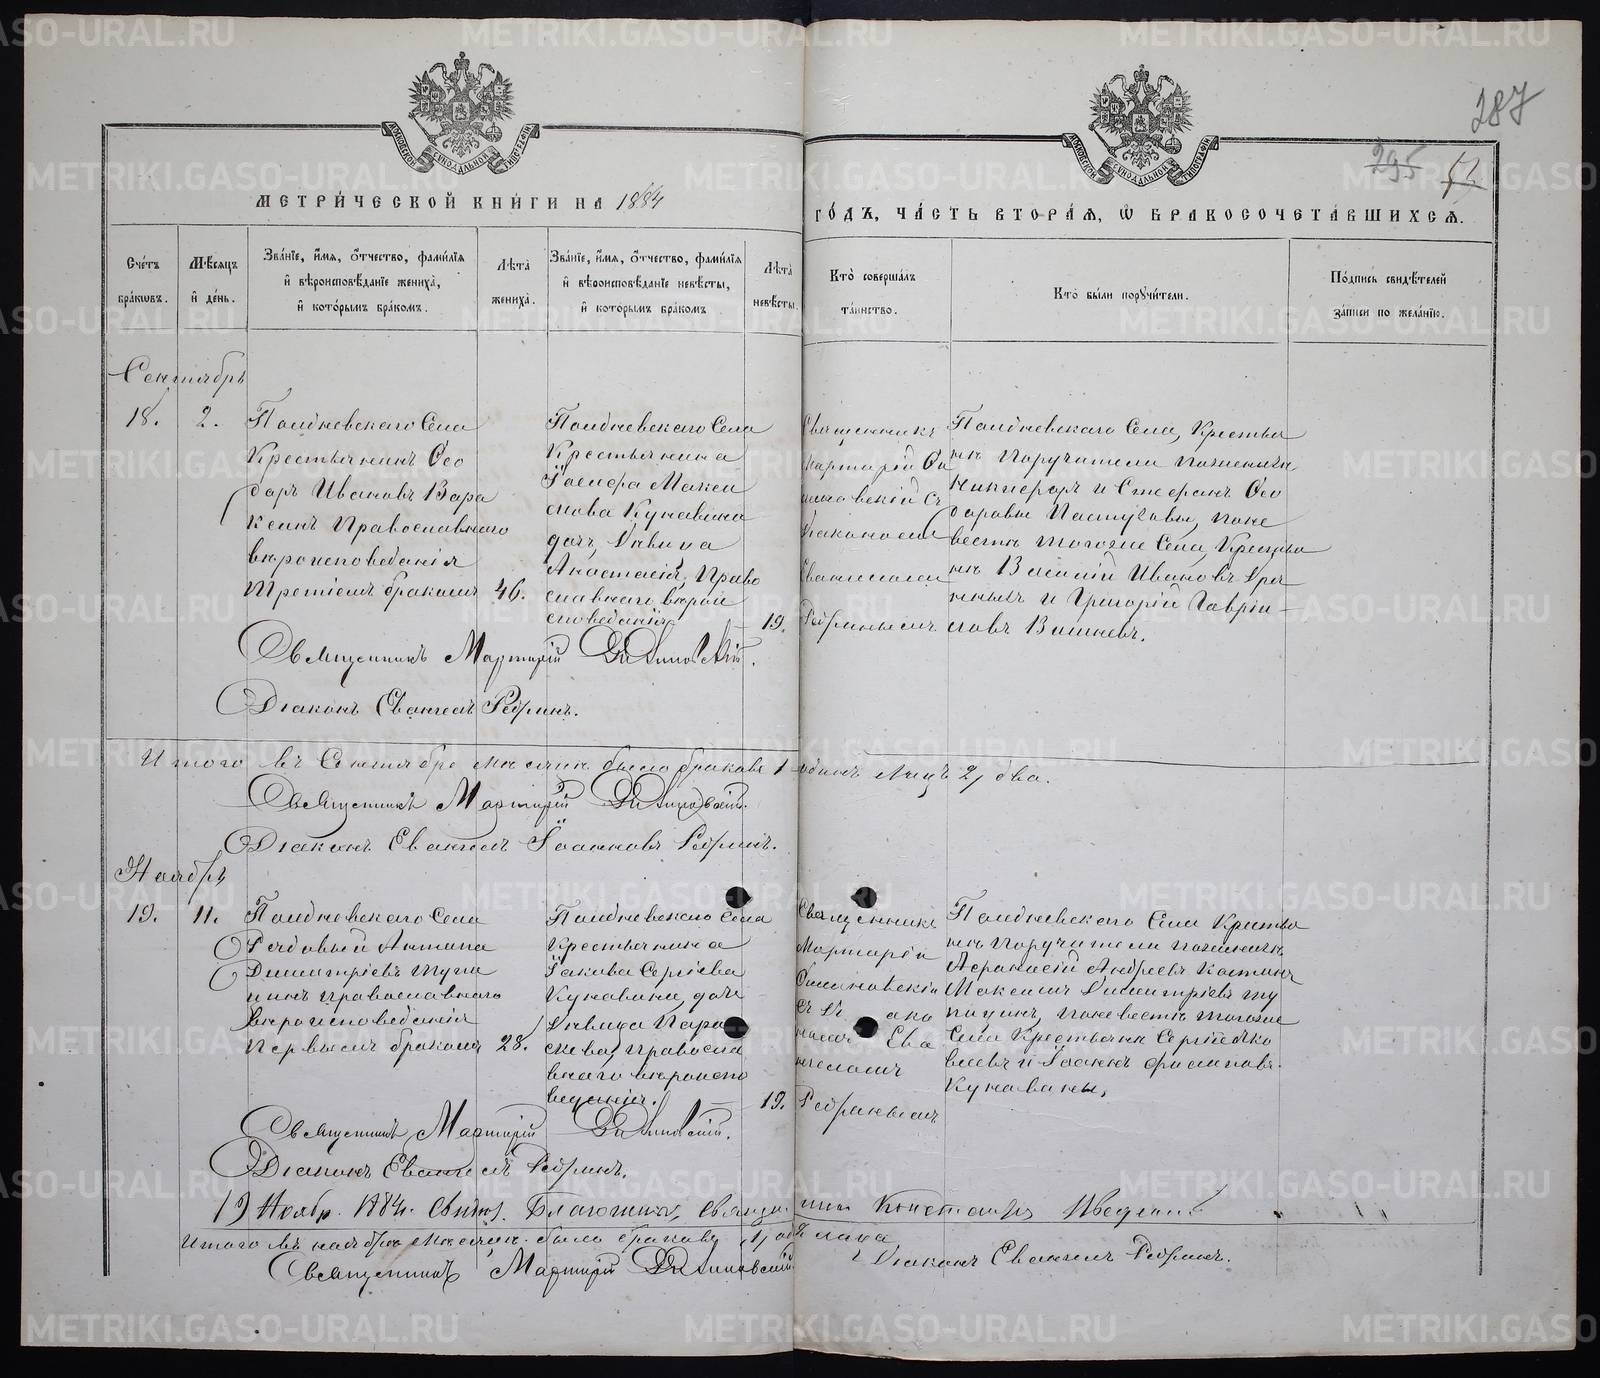 287
295
МЕТРИ́ЧЕСКОЙ КНИ́ГИ НА 1884
ГО́ДЪ, ЧА́СТЬ ВТОРА́Я, Ѡ БРАКОСОЧЕТА́ВШИХСЯ.
Сче́тъ бра́ковъ.
Мѣ́сяцъ и де́нь.
Зва́нїе, и́мя, о́тчество, фами́лїя и вѣроисповѣ́данїе жениха̀, и кото́рымъ бра́комъ.
Лѣ́та жениха̀.
Зва́нїе, и́мя, о́тчество, фами́лїя и вѣроисповѣ́данїе невѣ́сты, и кото́рымъ бра́комъ
Лѣ́та невѣ́сты.
Кто̀ соверша́лъ та́инство.
Кто̀ бы́ли поручи́тели.
По́дпись свидѣ́телей за́писи по жела́нїю.
Сентябрь
18.
2.
Полдневскаго Села
Крестьянинъ Ѳео
доръ Ивановъ Варак
синъ Православнаго
вѣроисповѣданія
Третьимъ бракомъ
46.
Полдневскаго Села
Крестьянина
Іосифа Макси
мова Кунавина
дочь, Дѣвица
Анастасія, Право
славнаго вѣрои
сповѣданія
19.
Священникъ
Мартирій
съ
Діакономъ
Евангеломъ
Ребринымъ
Полдневскаго Села, Крестья
не Поручители по женихѣ
Никифоръ и Стефанъ Ѳео
доровы Пастуховы, по не
вестѣ тогоже Села, Крестья
не Василій Ивановъ
и Григорій Гаврии
ловъ
Священникъ Мартирій
Діаконъ Евангелъ Ребринъ.
Итого въ Сентябре месяце было браковъ 1 одинъ лицъ 2, два.
Священникъ Мартирій
Діаконъ Евангелъ Іоанновъ Ребринъ.
Ноябрь
19.
11.
Полдневскаго Села
Рядовый Антипа
Димитріевъ Тупи
цинъ православнаго
вѣроисповѣданія
Первымъ бракомъ
28.
Полдневскаго Села
Крестьянина
Іакова Сергіева
Кунавина, дочь
Дѣвица Пара
скева, Правосла
внаго вѣроиспо
веданія.
19.
Священникъ
Мартирій
съ Діако
номъ Ева
нгеломъ
Ребринымъ
Полдневскаго Села Крестья
не Поручители по женихѣ
Афанасій Андреевъ Костинъ
Максимъ Димитріевъ Ту
пицинъ, по невестѣ тогоже
Села Крестьяне Сергій Яко
влевъ и Іоаннъ Филиповъ
Кунавины.
Священникъ Мартирій
Діаконъ Евангелъ Ребринъ.
19 Ноябр. 1884. Свидѣт. Благочинный, Священникъ Константинъ
Итого въ ноябре месяце было браковъ 1, 2 лица
Священникъ Мартирій
Діаконъ Евангелъ Ребринъ.
METRIKI.GASO-URAL.RU